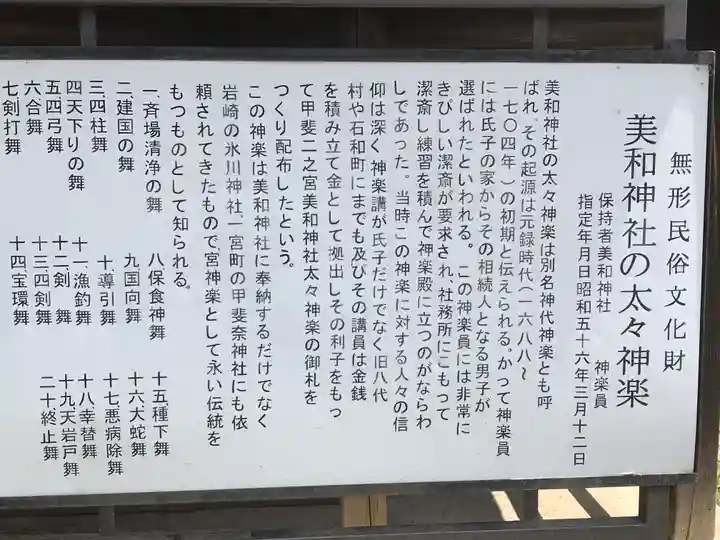 無形民俗文化財
美和神社の太々神楽
保持者美和神社　神楽員
指定年月日昭和五十六年三月十二日
美和神社の太々神楽は別名神代神楽とも呼
ばれ、その起源は元録時代(一六八八〜
一七〇四年)の初期と伝えられる。かって神楽員
には氏子の家からその相続人となる男子が
選ばれたといわれる。この神楽員には非常に
きびしい潔斎が要求され、社務所にこもって
潔斎し練習を積んで神楽殿に立つのがならわ
しであった。当時この神楽に対する人々の信
仰は深く、神楽講が氏子だけでなく旧八代
村や石和町にまでも及びその講員は金銭
を積み立て金として拠出しその利子をもっ
て甲斐二之宮美和神社太々神楽の御札を
つくり配布したという。
この神楽は美和神社に奉納するだけでなく
岩崎の氷川神社、一宮町の甲斐奈神社にも依
頼されてきたもので、宮神楽として永い伝統を
もつものとして知られる。
一、斉場清浄の舞　八保食神舞　十五、種下舞
二、建国の舞　九国向舞　十六大蛇舞
三、四柱舞　十、導引舞　十七悪病除舞
四天下りの舞　十一、漁釣舞　十八幸替舞
五四弓舞　十二剣舞　十九天岩戸舞
六合舞　十三、四剣舞　二十終止舞
七剣打舞　十四宝環舞